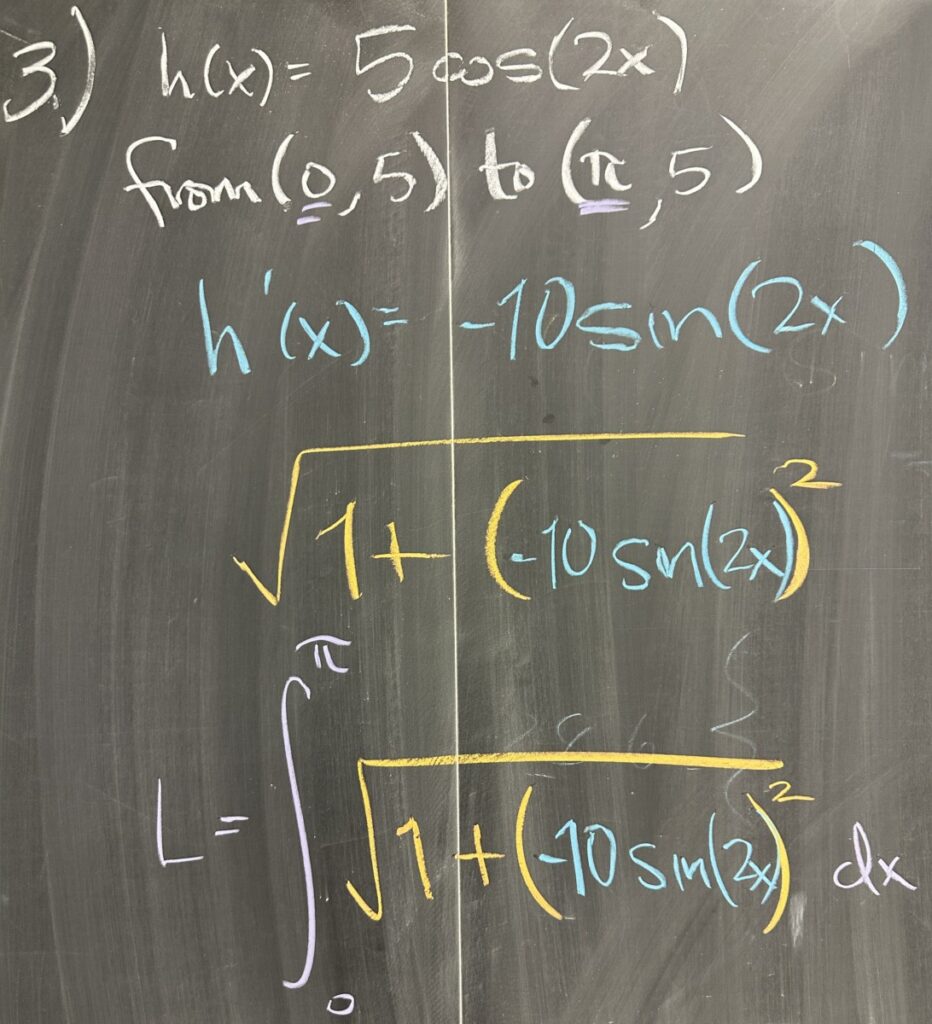 3.) h(x) = 5 cos(2x)
from (0, 5) to (π, 5)
h'(x) = -10 sin(2x)
√1 + (-10 sin(2x))²
L = ∫₀^π √1 + (-10 sin(2x))² dx